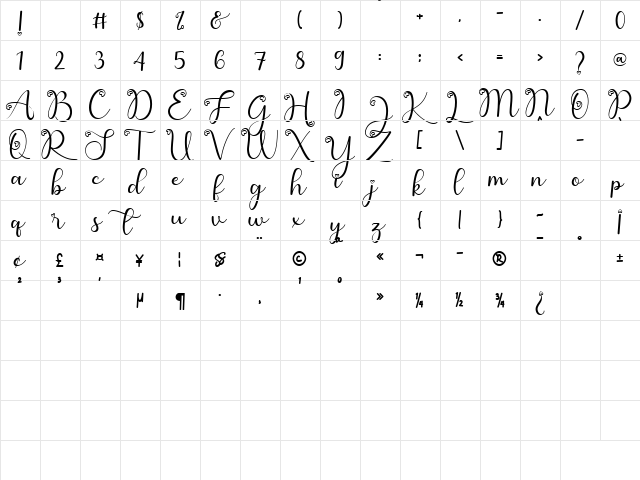 ! # $ % & ( ) + , - . / 0
1 2 3 4 5 6 7 8 9 : ; < = > ? @
A B C D E F G H I J K L M N O P
Q R S T U V W X Y Z [ \ ] -
a b c d e f g h i j k l m n o p
q r s t u v w x y z { | } -
¢ £ ¤ ¥ ¦ § © « ¬ - ® ±
² ³ ' µ ¶ · . ¹ º » ¼ ½ ¾ ¿